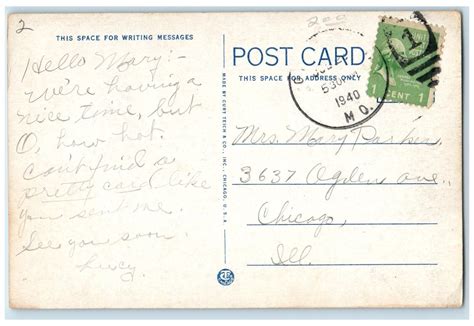 2
200
THIS SPACE FOR WRITING MESSAGES
Hello Mary:-
We're having a
nice time, but
O, how hot.
Can't find a
pretty card like
you sent me.
See you soon.
Lucy
MADE BY CURT TEICH & CO., INC., CHICAGO, U.S.A.
POST CARD
THIS SPACE FOR ADDRESS ONLY
1940
MO.
1
1 CENT 1
Mrs. Mary Parker
3637 Ogden ave.
Chicago,
Ill.